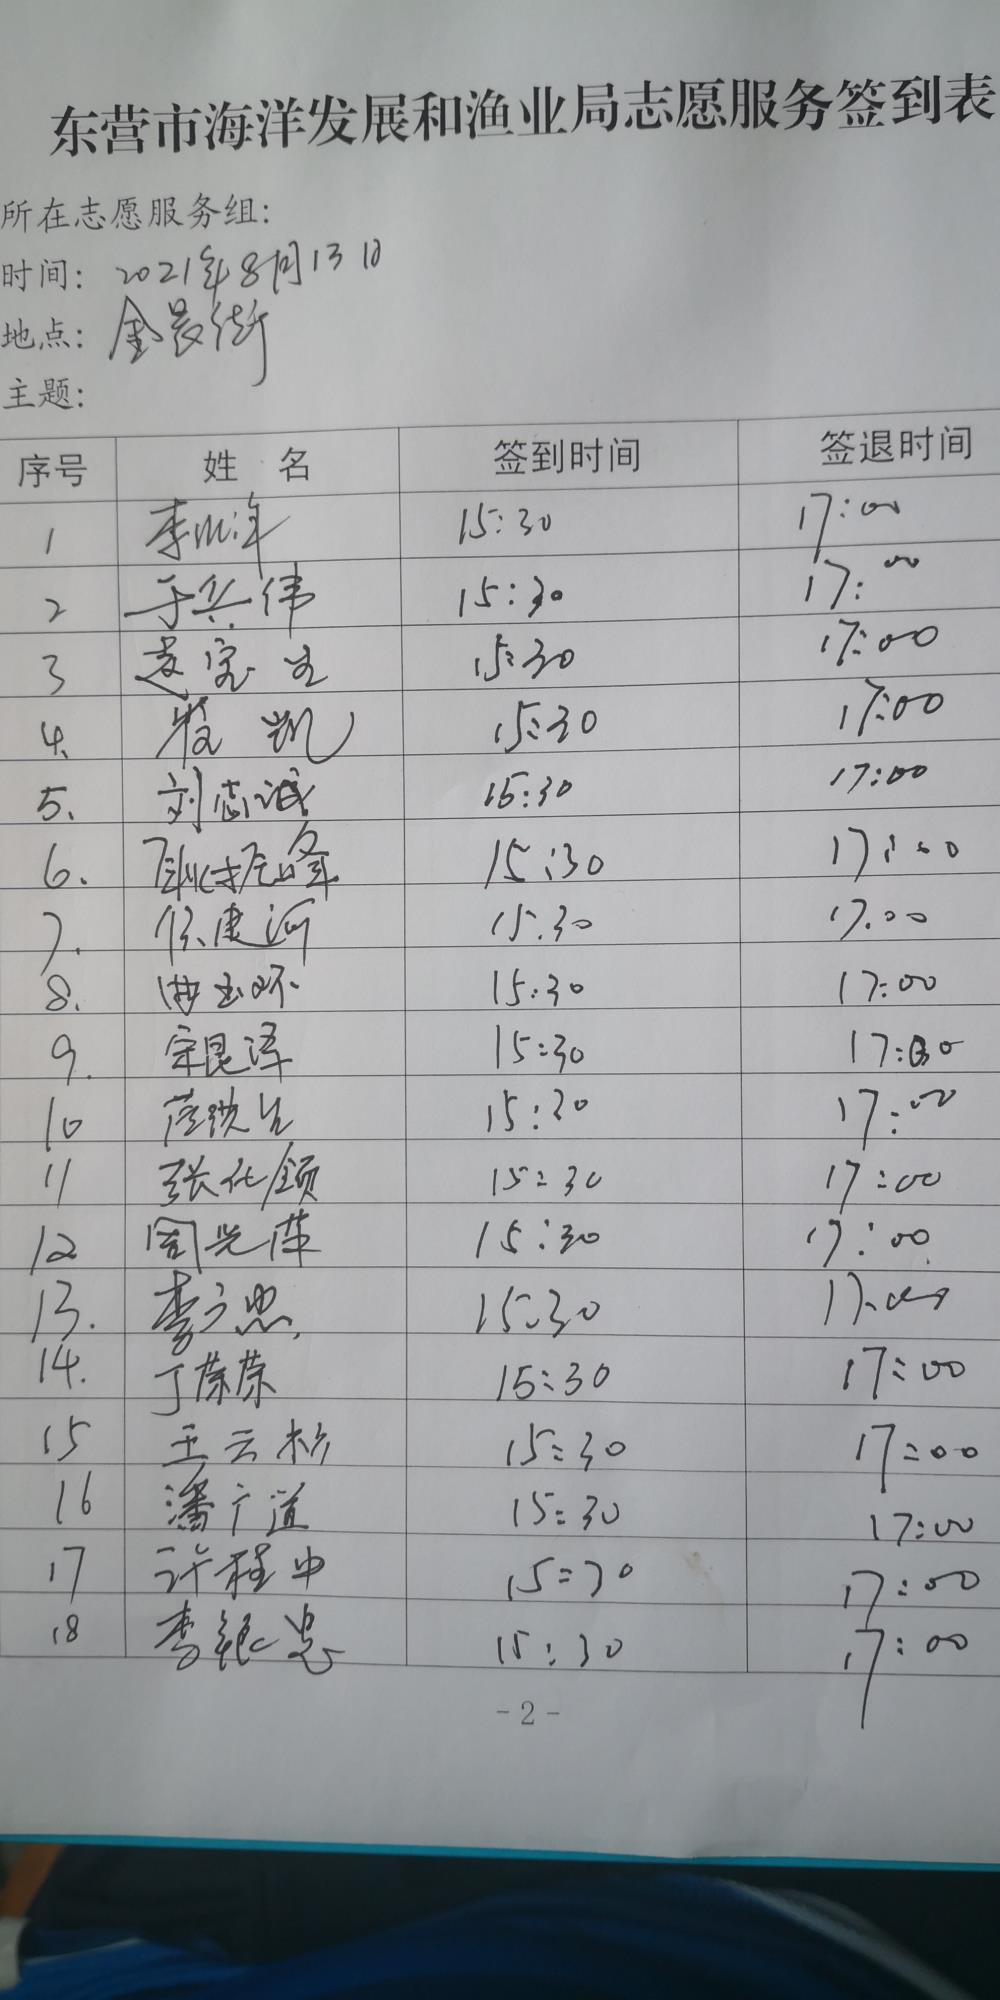 东营市海洋发展和渔业局志愿服务签到表
所在志愿服务组:
时间: 2021年8月13日
地点: 金晨街
主题:
序号 姓名 签到时间 签退时间
1 李 15:30 17:00
2 于兴伟 15:30 17:00
3 宝 15:30 17:00
4. 凯 15:30 17:00
5. 刘志诚 15:30 17:00
6. 峰 15:30 17:00
7. 侯建河 15:30 17.00
8. 曲玉环 15:30 17:00
9. 宋昆泽 15:30 17:00
10 15:30 17:00
11 张化 15:30 17:00
12 周光萍 15:30 17:00
13. 李忠 15:30 17:00
14. 丁荣荣 15:30 17:00
15 王云杉 15:30 17:00
16 潘广道 15:30 17:00
17 许程中 15:30 17:00
18 李银忠 15:30 17:00
-2-